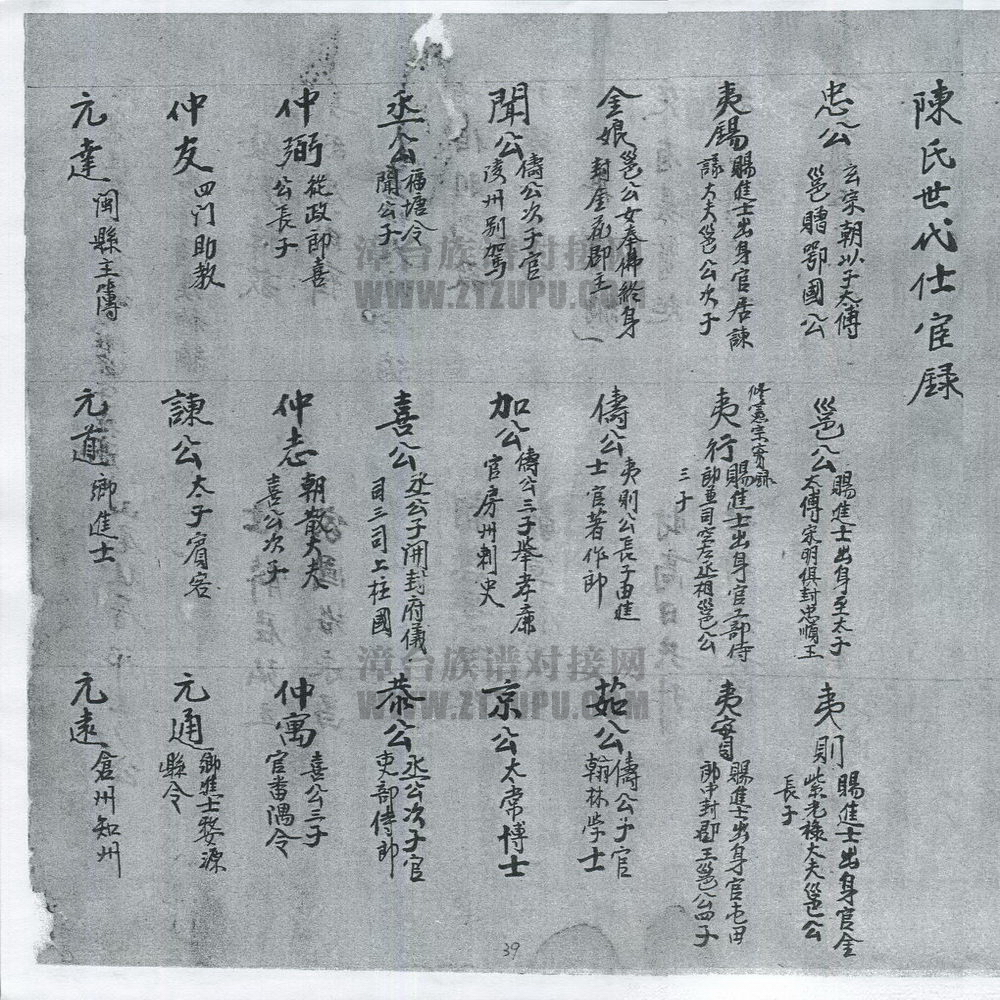 陳氏世代仕宦録
忠公
玄宗朝以子太傅
邕贈鄂國公
邕公
賜進士出身至太子
太傅宋明俱封忠順王
夷則
賜進士出身官金
紫光祿大夫邕公
長子
夷錫
賜進士出身官居諫
議大夫邕公次子
修憲宗實録
夷行
賜進士出身官工部侍
郎並司空左丞相邕公
三子
夷實
賜進士出身官屯田
郎中封郡王邕公四子
金娘
邕公女奉佛終身
封奎花郎主
儔公
夷則公長子由進
士官著作郎
茹公
儔公子官
翰林學士
聞公
儔公次子官
陵州别駕
加公
儔公三子舉孝廉
官房州刺史
京公
太常博士
丞公
福塘令
聞公子
喜公
丞公子開封府儀
司三司上柱國
恭公
丞公次子官
吏部侍郎
仲弼
從政郎喜
公長子
仲志
朝散大夫
喜公次子
仲寓
喜公三子
官番隅令
仲友
四门助教
諫公
太子賓客
元通
鄉進士婺源
縣令
元達
閩縣主簿
元道
鄉進士
元遠
倉州知州
39
漳台族谱对接网
WWW.ZTZUPU.COM
漳台族谱对接网
WWW.ZTZUPU.COM